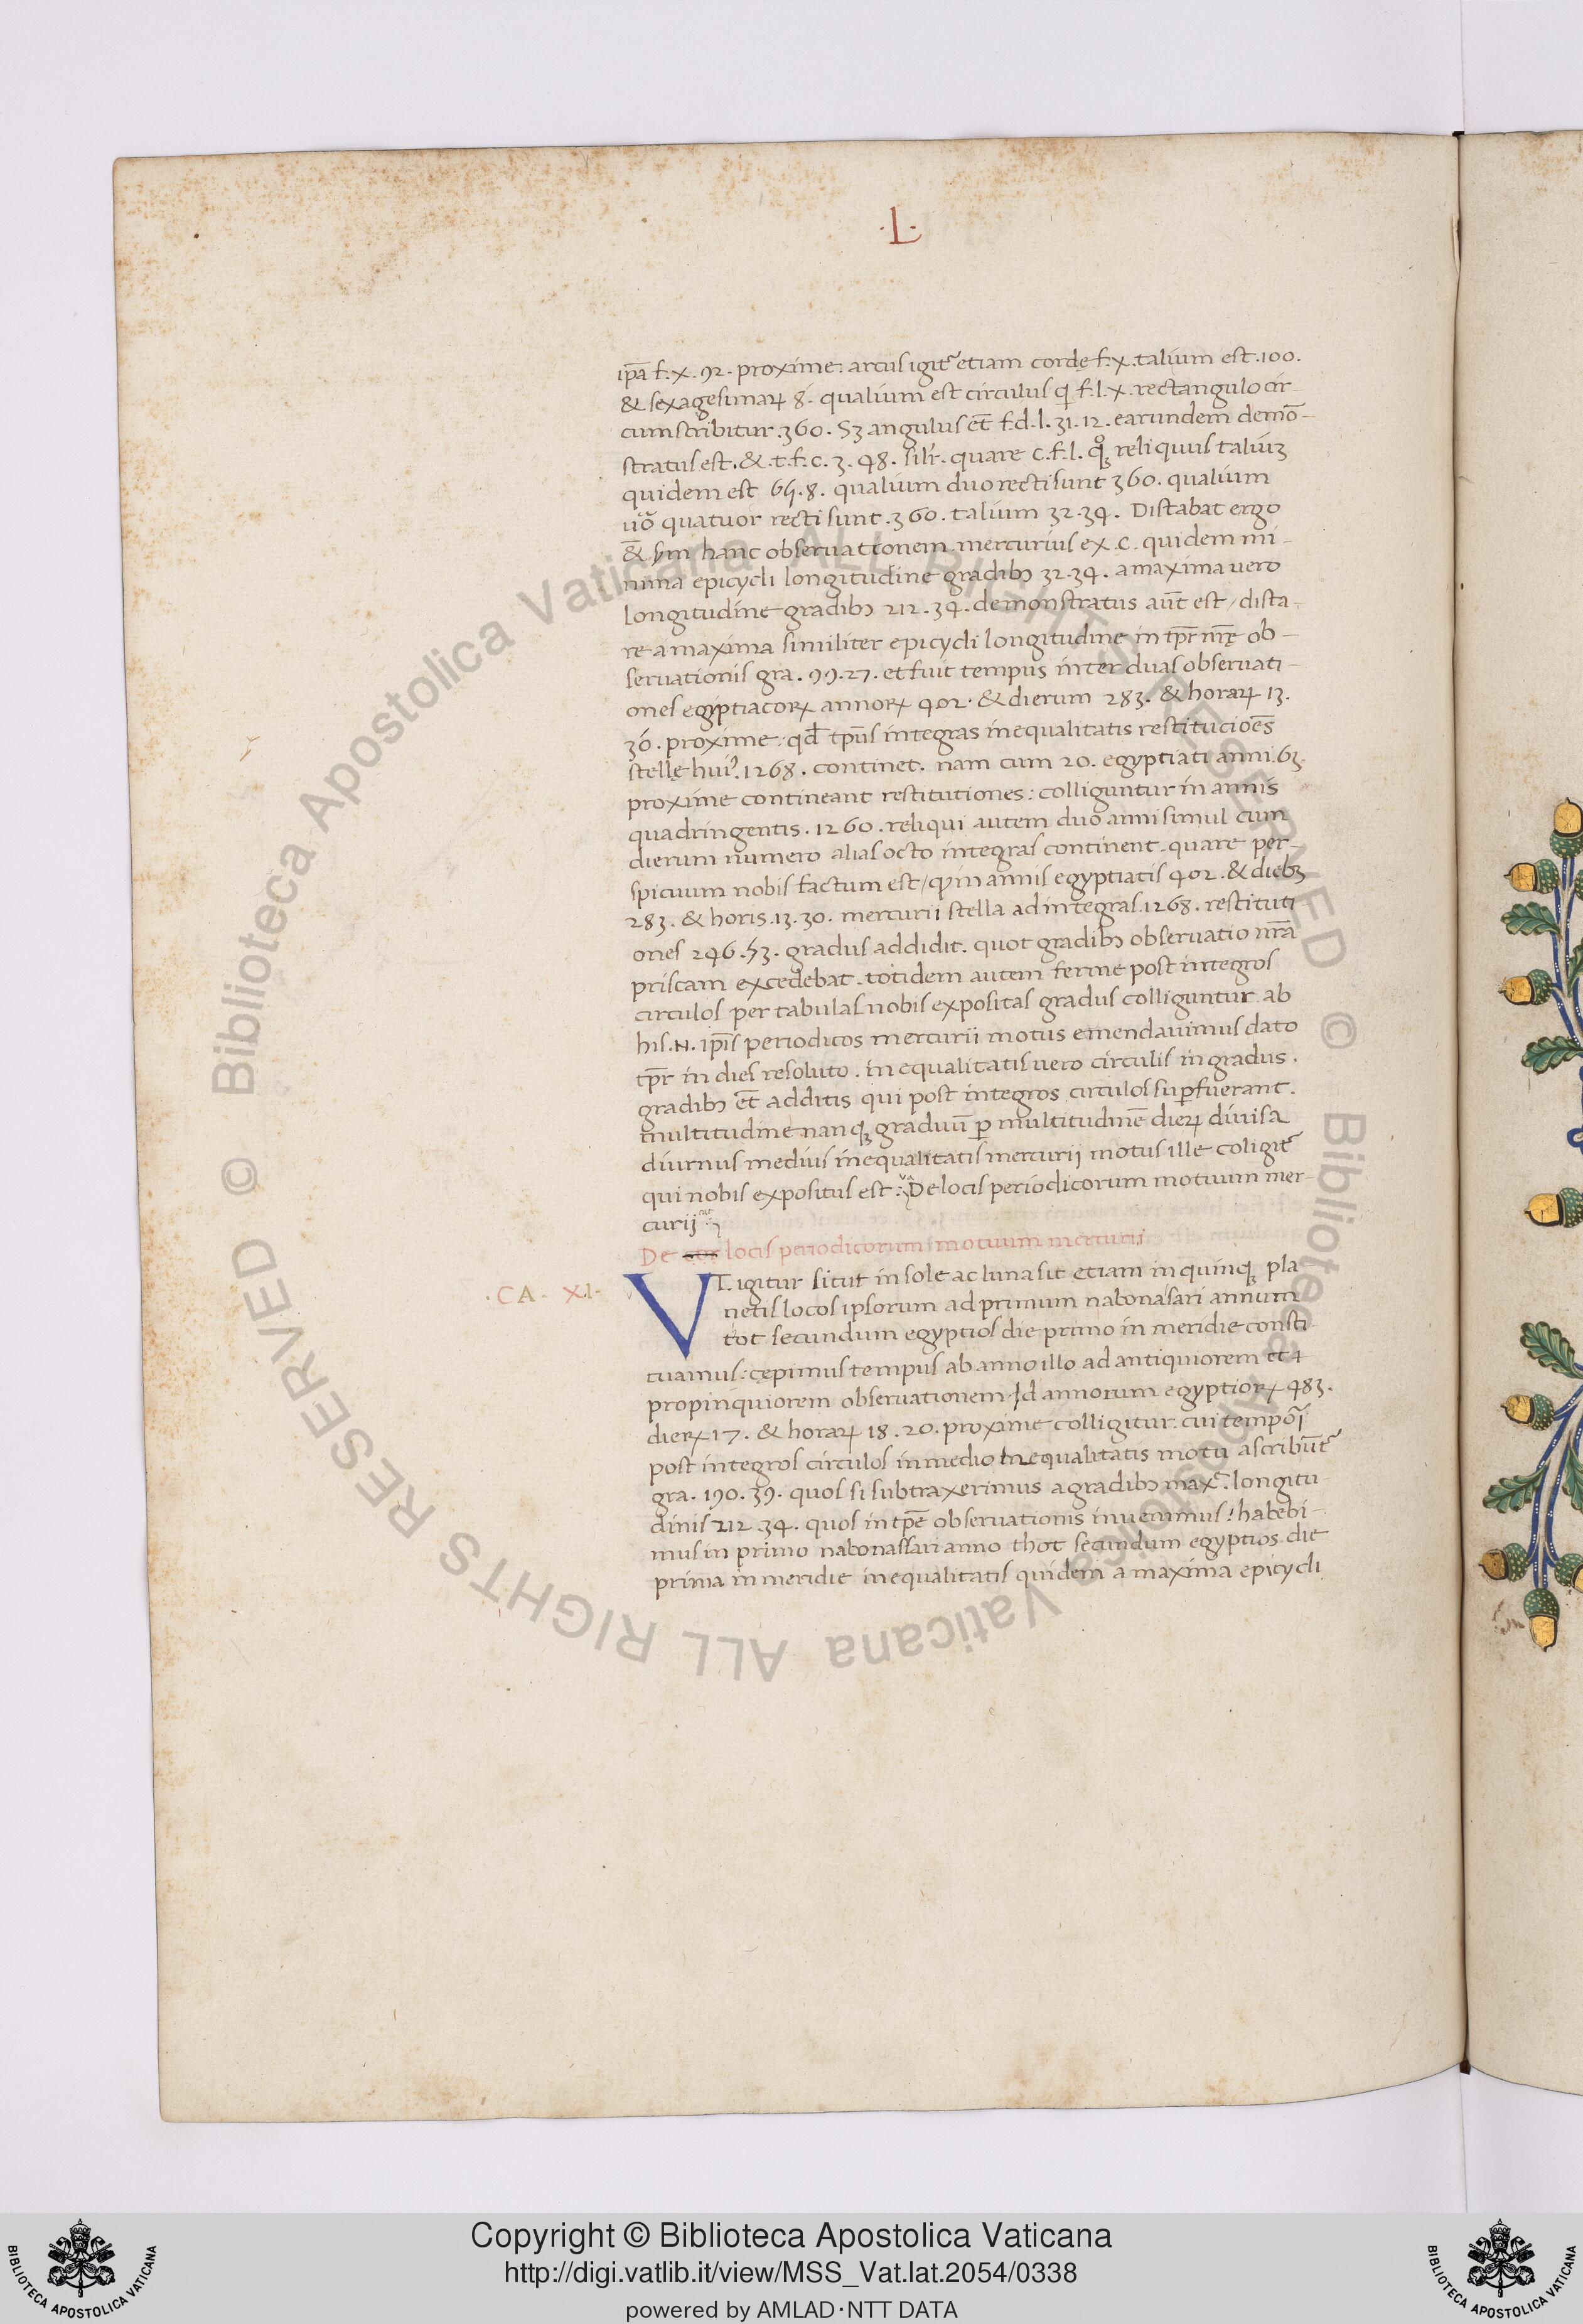 ·L·
ip̄a f. x. 92. proxime: arcus igit᷑ etiam cordę f. x. talium est .100.
& sexagesimaꝝ 8. qualium est circulus qͥ f. l. x. rectangulo cir-
cumscribitur .360. Sꝫ angulus et̄ f. d. l. 31. 12. earundem demō-
stratus est. & .t. f. c. 3. 48. silr̄. quare c. f. l. qͦꝫ reliquus taliuꝫ
quidem est 65. 8. qualium duo recti sunt 360. qualium
uͦo quatuor recti sunt .360. talium 32. 34. Distabat ergo
& sm̄ hanc obseruationem mercurius ex .c. quidem mi-
nima epicycli longitudine gradibꝫ 32. 34. a maxima uero
longitudine gradibꝫ 212. 34. demonstratus aūt est / dista-
re a maxima similiter epicycli longitudine in tp̄r nr̄ę ob-
seruationis gra. 99. 27. et fuit tempus inter duas obseruati-
ones egiptiacoꝝ annoꝝ 402. & dierum 283. & horaꝝ 13.
30. proxime: qd̄ tp̄us integras inequalitatis restitucioēs
stellę huiꝰ .1268. continet. nam cum 20. egyptiati anni .63.
proxime contineant restitutiones: colliguntur in annis
quadringentis .1260. reliqui autem duo anni simul cum
dierum numero alias octo integras continent. quare per-
spicuum nobis factum est / ꝙ in annis egyptiatis 402. & diebꝫ
283. & horis .13. 30. mercurii stella ad integras .1268. restituti
ones 246. 53. gradus addidit. quot gradibꝫ obseruatio nr̄a
priscam excedebat. totidem autem ferme post integros
circulos per tabulas nobis expositas gradus colliguntur. ab
his .N. ip̄is periodicos mercurii motus emendauimus dato
tp̄r in dies resoluto. inequalitatis uero circulis in gradus.
gradibꝫ et̄ additis qui post integros circulos suꝑfuerant.
multitudine nanqꝫ graduū ꝑ multitudinē dieꝝ diuisa
diurnus medius inequalitatis mercurij motus ille coligit᷑
qui nobis expositus est: De locis periodicorum motuum mer-
curij
De locis periodicorum motuum mercurij
·CA· XI·
VT igitur sicut in sole ac luna sic etiam in quinqꝫ pla
netis locos ipsorum ad primum nabonasari annum
tot secundum egyptios die primo in meridie consti
tuamus: cepimus tempus ab anno illo ad antiquiorem et
propinquiorem obseruationem Id annorum egyptioꝝ 483.
dieꝝ 17. & horaꝝ 18. 20. proxime colligitur. cui tempoī
post integros circulos in medio Inequalitatis motu ascribūt᷑
gra. 190. 39. quos si subtraxerimus a gradibꝫ max̄. longitu
dinis 212. 34. quos in tp̄e obseruationis inuenimus: habebi-
mus in primo nabonassari anno thot secundum egyptios die
prima in meridie inequalitatis quidem a maxima epicycli
© Biblioteca Apostolica Vaticana ALL RIGHTS RESERVED © Biblioteca Apostolica Vaticana ALL RIGHTS RESERVED
Copyright © Biblioteca Apostolica Vaticana
http://digi.vatlib.it/view/MSS_Vat.lat.2054/0338
powered by AMLAD·NTT DATA
BIBLIOTECA APOSTOLICA VATICANA
BIBLIOTECA APOSTOLICA VATICANA